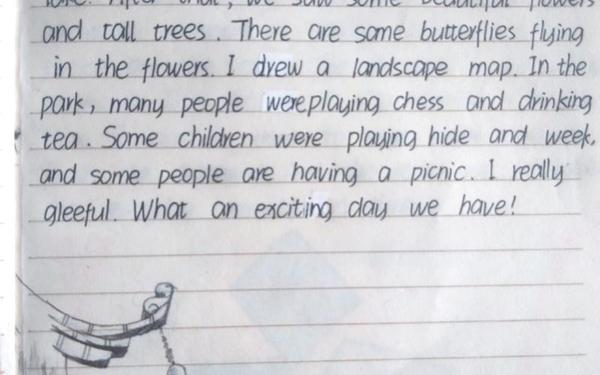 lake. After that, we saw some beautiful flowers
and tall trees. There are some butterflies flying
in the flowers. I drew a landscape map. In the
park, many people were playing chess and drinking
tea. Some children were playing hide and week,
and some people are having a picnic. I really
gleeful. What an exciting day we have!